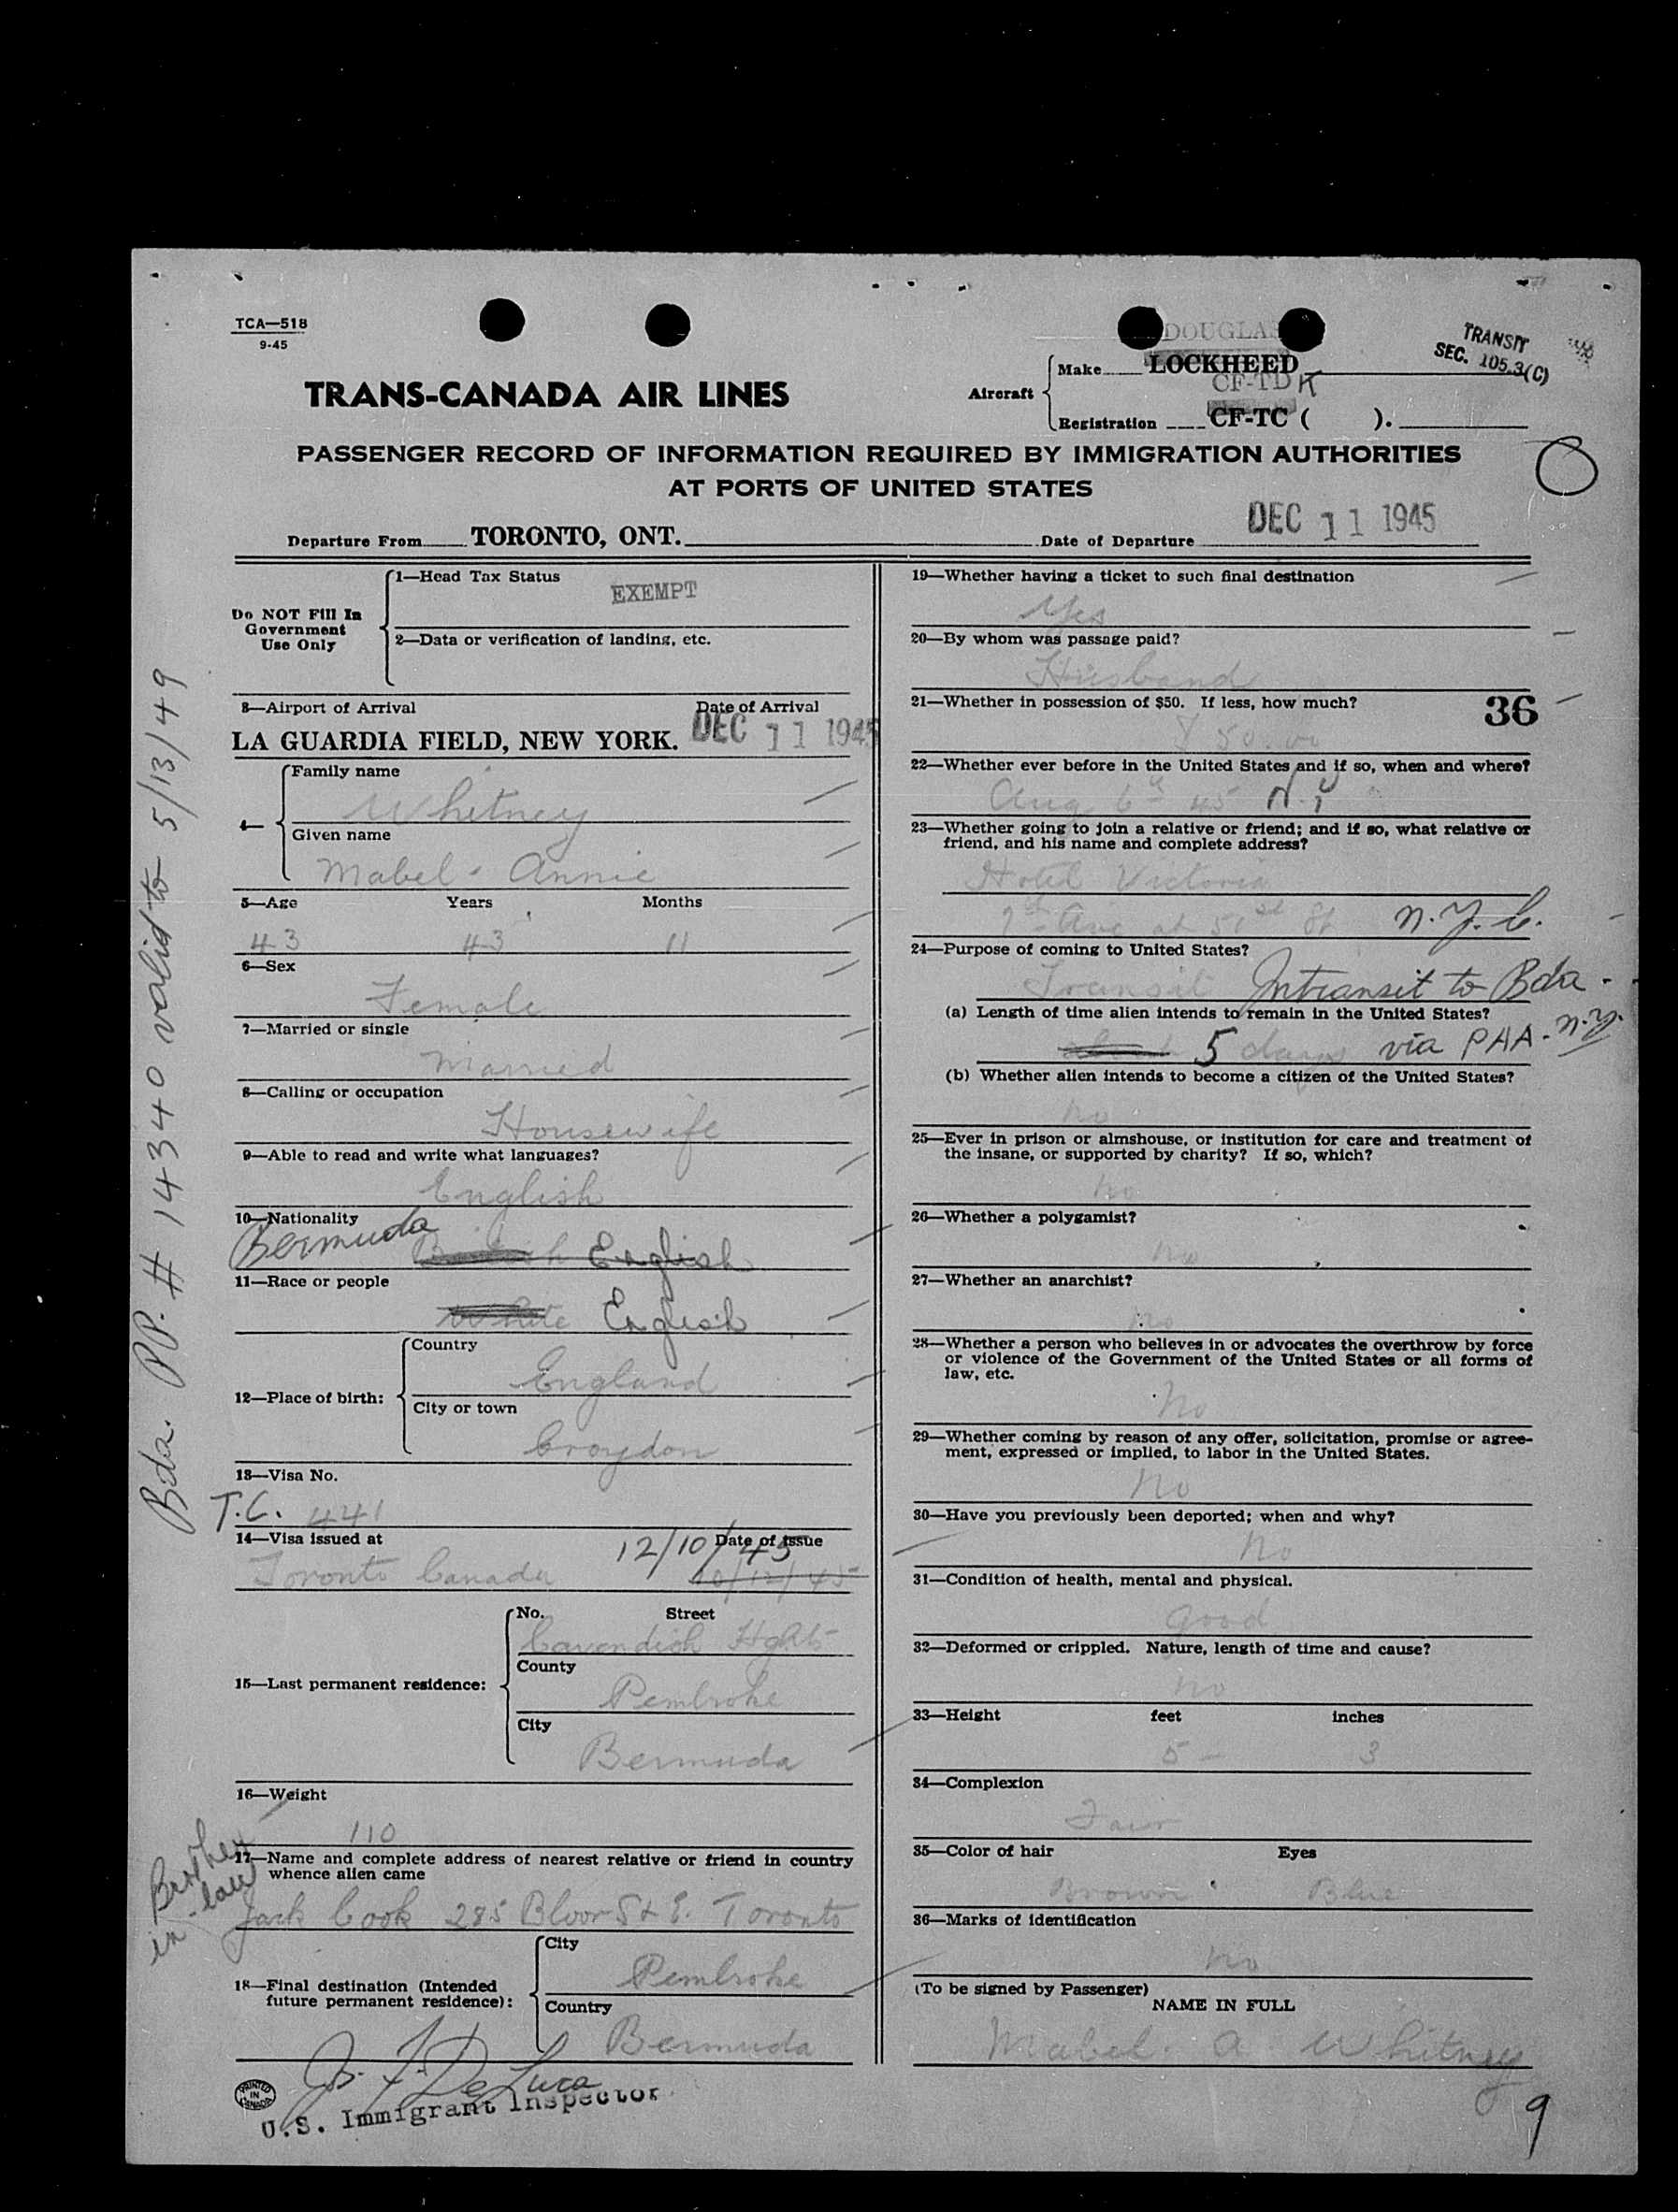 TCA—518
9-45
DOUGLAS
TRANSIT
SEC. 105.3(C)
TRANS-CANADA AIR LINES
Aircraft
Make LOCKHEED
CF-TDK
Registration CF-TC ( ).
PASSENGER RECORD OF INFORMATION REQUIRED BY IMMIGRATION AUTHORITIES
AT PORTS OF UNITED STATES
Departure From TORONTO, ONT. Date of Departure DEC 11 1945
Do NOT Fill In
Government
Use Only
1—Head Tax Status
EXEMPT
2—Data or verification of landing, etc.
3—Airport of Arrival Date of Arrival
LA GUARDIA FIELD, NEW YORK. DEC 11 1945
4—
Family name
Whitney
Given name
Mabel Annie
5—Age Years Months
43 43 11
6—Sex
Female
7—Married or single
Married
8—Calling or occupation
Housewife
9—Able to read and write what languages?
English
10—Nationality
Bermuda British English
11—Race or people
White English
12—Place of birth:
Country
England
City or town
Croydon
13—Visa No.
T.C. 441
14—Visa issued at Date of issue
12/10/45
Toronto Canada 10/12/45
15—Last permanent residence:
No. Street
Cavendish Hghts
County
Pembroke
City
Bermuda
16—Weight
110
17—Name and complete address of nearest relative or friend in country
whence alien came
Brother
in-law
Jack Cook 285 Bloor St E. Toronto
18—Final destination (Intended
future permanent residence):
City
Pembroke
Country
Bermuda
Js. F. De Luca
U.S. Immigrant Inspector
PRINTED
IN
CANADA
Bda. PP. # 14340 valid to 5/13/49
19—Whether having a ticket to such final destination
Yes
20—By whom was passage paid?
Husband
21—Whether in possession of $50. If less, how much?
36
$50.00
22—Whether ever before in the United States and if so, when and where?
Aug 6th 45 N.Y
23—Whether going to join a relative or friend; and if so, what relative or
friend, and his name and complete address?
Hotel Victoria
7th Ave at 51st St N.Y.C.
24—Purpose of coming to United States?
Transit Intransit to Bda.
(a) Length of time alien intends to remain in the United States?
about 5 days via PAA-N.Y.
(b) Whether alien intends to become a citizen of the United States?
No
25—Ever in prison or almshouse, or institution for care and treatment of
the insane, or supported by charity? If so, which?
No
26—Whether a polygamist?
No
27—Whether an anarchist?
No
28—Whether a person who believes in or advocates the overthrow by force
or violence of the Government of the United States or all forms of
law, etc.
No
29—Whether coming by reason of any offer, solicitation, promise or agree-
ment, expressed or implied, to labor in the United States.
No
30—Have you previously been deported; when and why?
No
31—Condition of health, mental and physical.
Good
32—Deformed or crippled. Nature, length of time and cause?
No
33—Height feet inches
5 - 3
34—Complexion
Fair
35—Color of hair Eyes
Brown Blue
36—Marks of identification
No
(To be signed by Passenger)
NAME IN FULL
Mabel. A Whitney
9